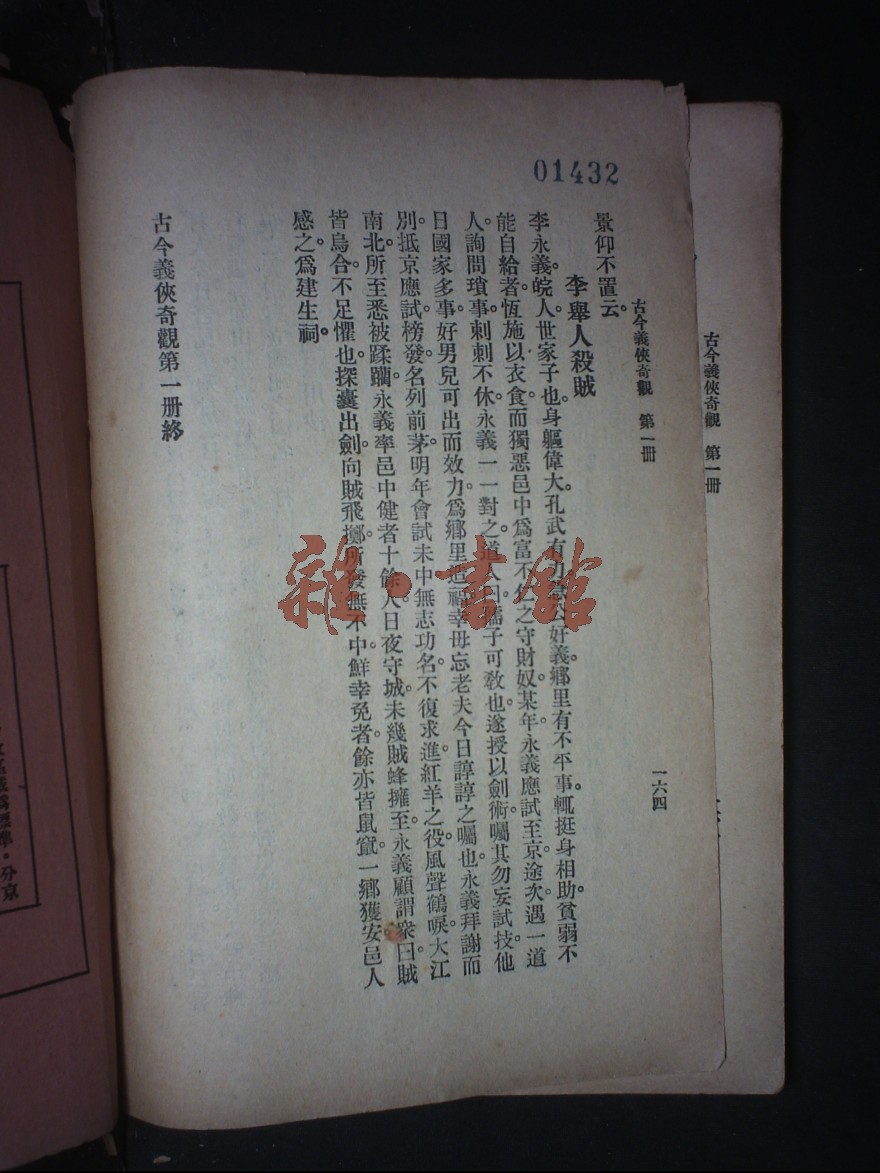 01432
古今義俠奇觀 第一册
古今義俠奇觀 第一册
一六四
景仰不置云。
李舉人殺賊
李永義。皖人。世家子也。身軀偉大。孔武有力。 公好義。鄉里有不平事。輒挺身相助。貧弱不
能自給者。恆施以衣食。而獨惡邑中爲富不仁之守財奴。某年。永義應試至京。途次。遇一道
人。詢問瑣事。刺刺不休。永義一一對之。道人曰。孺子可敎也。遂授以劍術。囑其勿妄試技。他
日國家多事。好男兒可出而效力。爲鄉里造福。幸毋忘老夫今日諄諄之囑也。永義拜謝而
別。抵京應試。榜發。名列前茅。明年會試未中。無志功名。不復求進。紅羊之役。風聲鶴唳。大江
南北。所至悉被蹂躪。永義率邑中健者十餘人。日夜守城。未幾。賊蜂擁至。永義顧謂衆曰。賊
皆烏合。不足懼也。探囊出劍。向賊飛擲。所發無不中。鮮幸免者。餘亦皆鼠竄。一鄉獲安。邑人
感之。爲建生祠。
古今義俠奇觀第一册終
雜·書館
分京